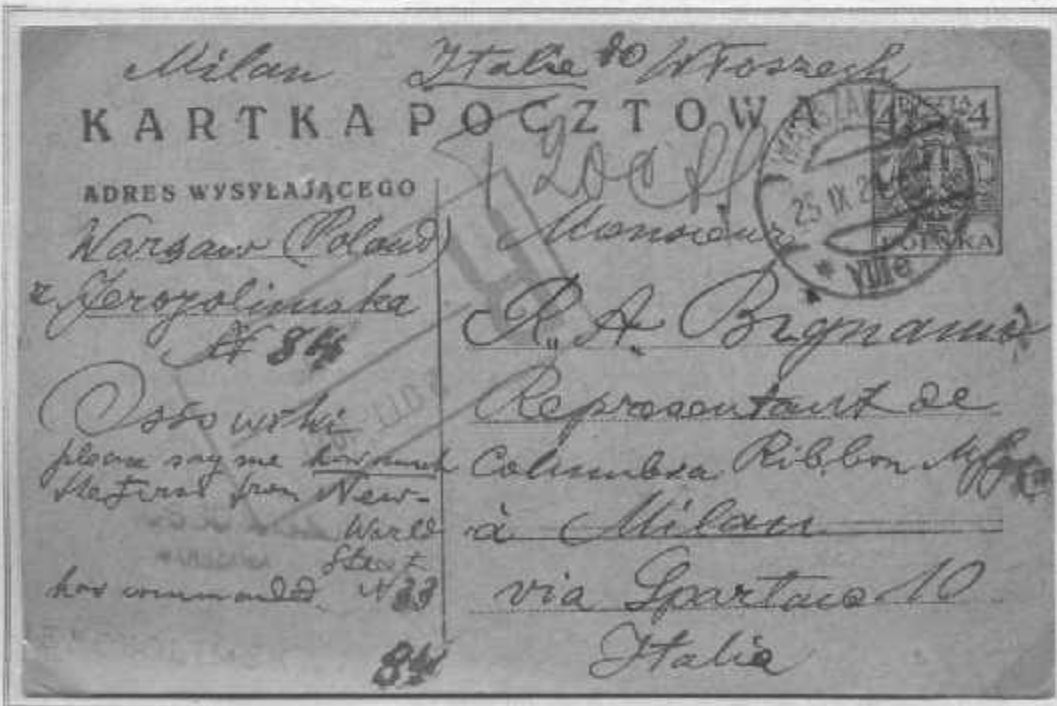 Milan Italie do Włoszech
KARTKA POCZTOWA
4 4
POLSKA
WARSZAWA
25 IX 2
VIII e
200
ADRES WYSYŁAJĄCEGO
Warsaw (Poland)
Jerozolimska
N 84
Ossowski
please say me how much
the firm from New-
World
Street
has commanded N 33
84
Monsieur
R. A. Bignami
Representant de
Columbia Ribbon Mfg
à Milan
via Spartaco 10
Italie